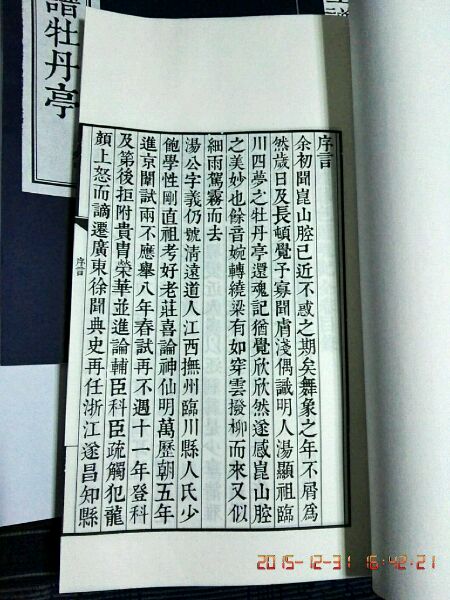 序言
余初聞崑山腔已近不惑之期矣舞象之年不屑爲
然歲日及長頓覺予寡聞膚淺偶識明人湯顯祖臨
川四夢之牡丹亭還魂記猶覺欣欣然遂感崑山腔
之美妙也餘音婉轉繞梁有如穿雲撥柳而來又似
細雨駕霧而去
湯公字義仍號清遠道人江西撫州臨川縣人氏少
飽學性剛直祖考好老莊喜論神仙明萬歷朝五年
進京闈試兩不應舉八年春試再不遇十一年登科
及第後拒附貴胄榮華並進論輔臣科臣疏觸犯龍
顏上怒而謫遷廣東徐聞典史再任浙江遂昌知縣
序言
譜牡丹亭
2015-12-31 16:42:21